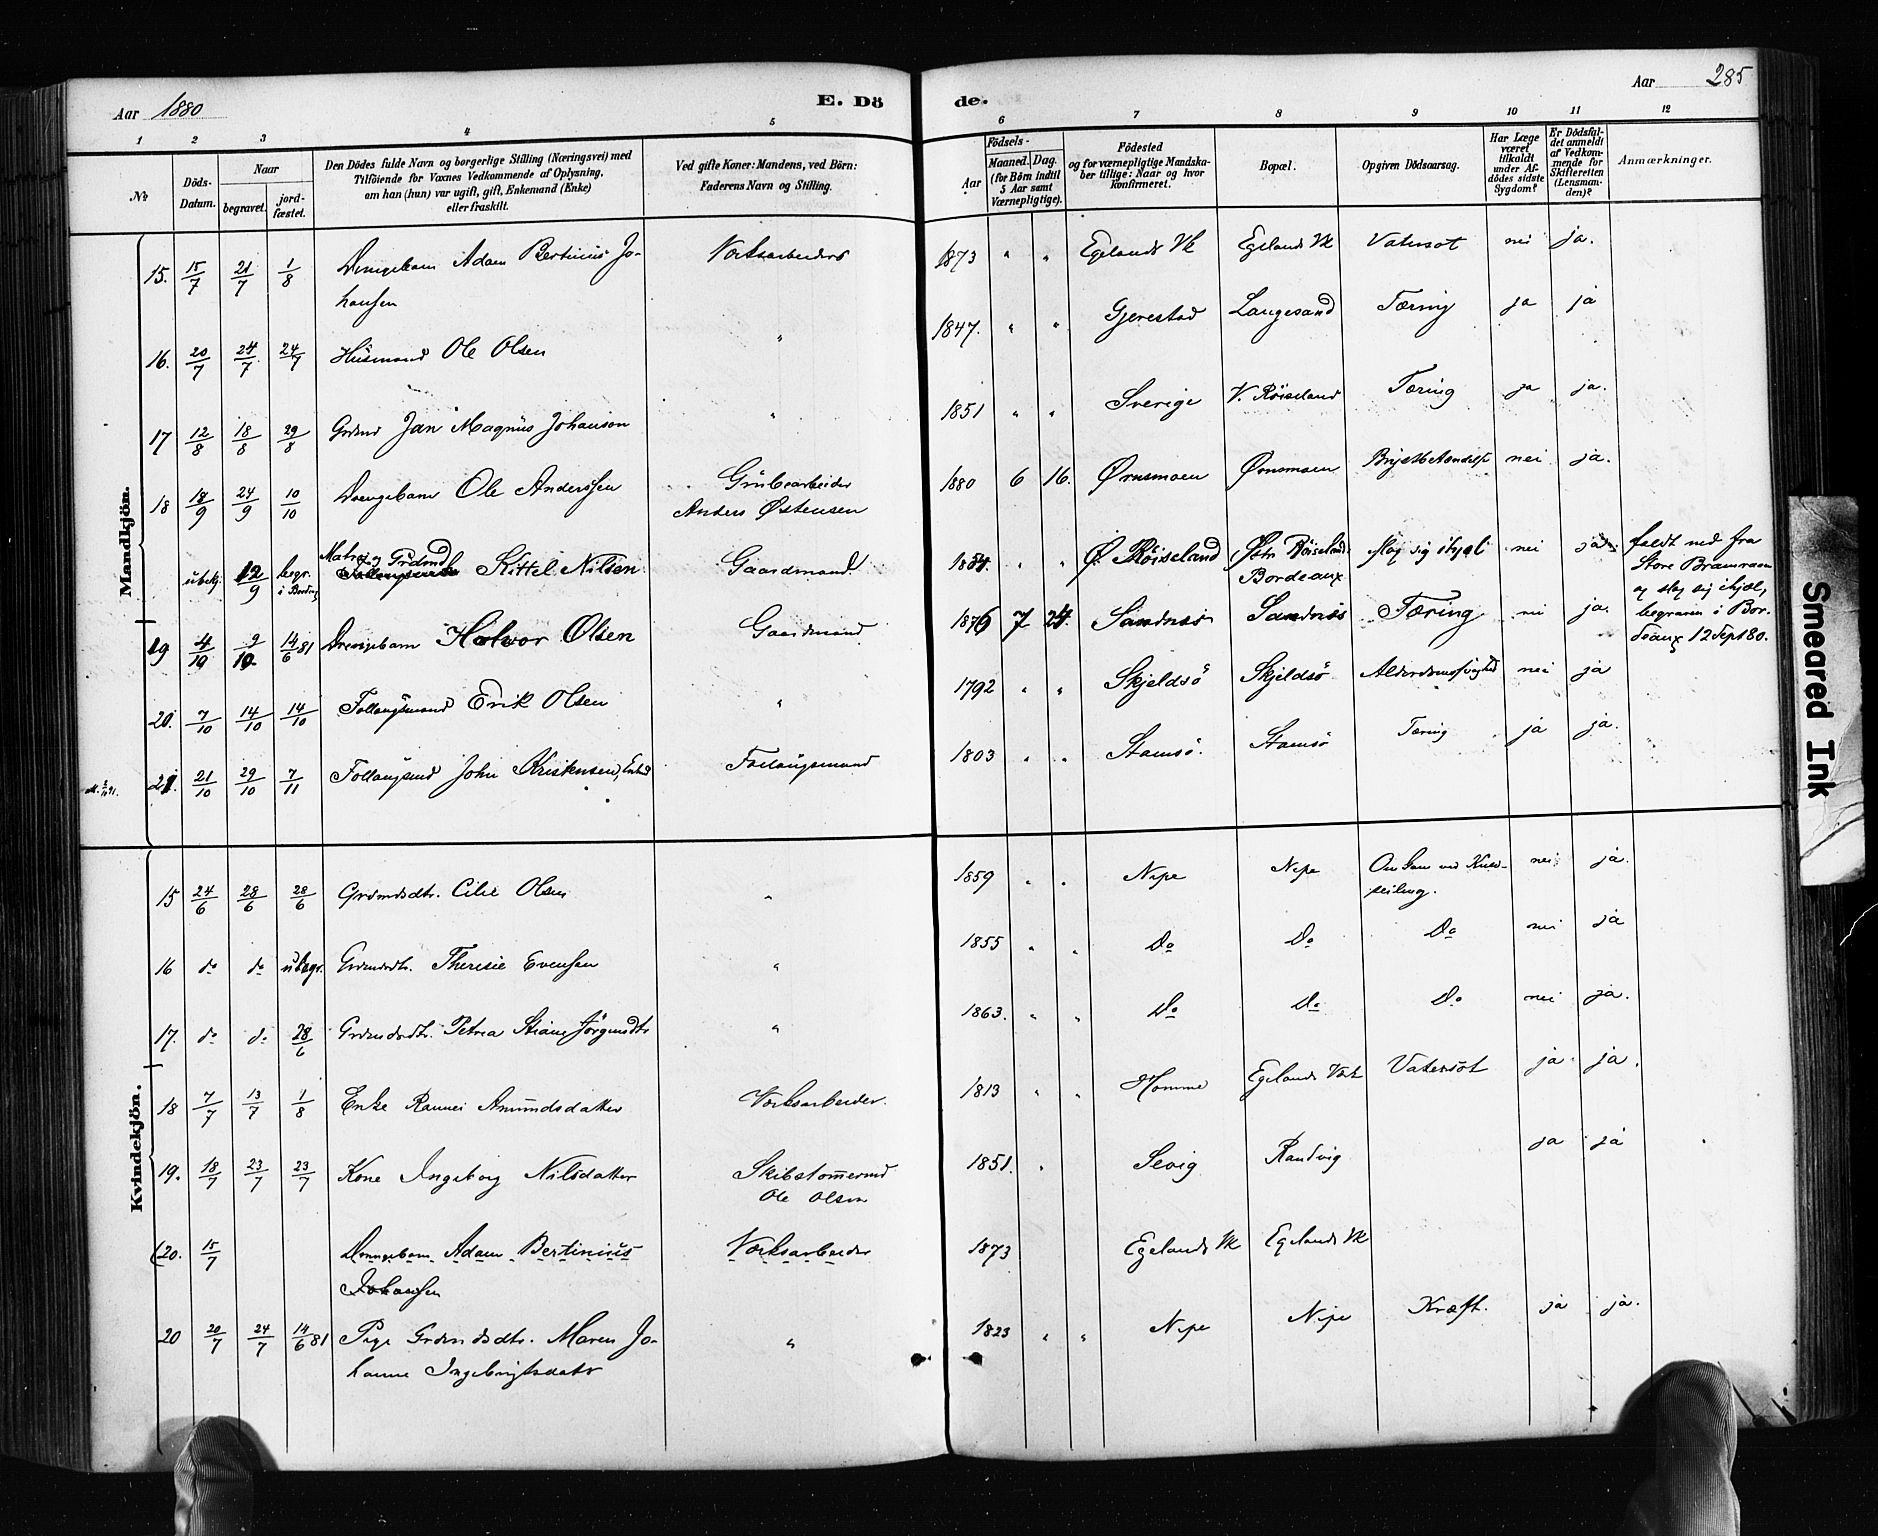 Aar 1880
E. Dö
de.
Aar 285
1 2 3 4 5 6 7 8 9 10 11 12
No
Döds-Datum.
Naar
begravet.
jord-fæstet.
Den Dödes fulde Navn og borgerlige Stilling (Næringsvei) med
Tilföiende for Voxnes Vedkommende af Oplysning,
om han (hun) var ugift, gift, Enkemand (Enke)
eller fraskilt.
Ved gifte Koner: Mandens, ved Börn:
Faderens Navn og Stilling.
Födsels-
Aar
Maaned. Dag.
(for Börn indtil
5 Aar samt
Værnepligtige).
Födested
og for værnepligtige Mandska-
ber tillige: Naar og hvor
konfirmeret.
Bopæl.
Opgiven Dödsaarsag.
Har Læge
været
tilkaldt
under Af-
dödes sidste
Sygdom?
Er Dödsfal-
det anmeldt
af Vedkom-
mende for
Skifteretten
(Lensman-
den)?
Anmærkninger.
Mandkjön.
15. 15/7 21/7 1/8 Drengebarn Adam Bertinius Jo-
hansen
Værksarbeiders 1873 " " Egelands Vk Egelands Vk Vatersot nei ja.
16. 20/7 24/7 24/7 Husmand Ole Olsen " 1847. " " Gjerestad Langesand Tæring ja ja
17 12/8 18/8 29/8 Grdmd Jan Magnus Johanson " 1851 " " Sverige V. Röiseland Tæring ja ja.
18 18/9 24/9 10/10 Drengebarn Ole Anderssen Grubearbeider
Anders Østensen
1880 6 16. Ørnsmoen Ørnsmoen Brystbetændelse nei ja.
ubekj. 12/9 begr. i Bordeaux Matros og Grdmd Kittel Nilsen Gaardmand. 1854. " " Ø. Röiseland Østre Röiseland.
Bordeaux
slog sig ihjæl nei ja. faldt ned fra
Store Bramraa
og slog sig ihjæl,
begraven i Bor-
deaux 12 Sept 80.
19 4/10 9/10. 14/6 81 Drengebarn Halvor Olsen Gaardmand 1876 7 24. Sandnæs Sandnæs Tæring nei ja.
20. 7/10 14/10 14/10 Follaugsmand Erik Olsen " 1792 " " Skjeldsö Skjeldsö Alderdomssvaghed nei ja
21. 21/10 29/10 7/11 Follaugsmd John Kristensen, Enkmd Follaugsmand 1803 " " Stamsö. Stamsö Tæring ja ja.
Kvindekjön.
15 24/6 28/6 28/6 Grdmdsdtr. Cilie Olsen " 1859 " " Nipe Nipe Omkom ved Kuld-
seiling.
nei ja.
16 do do ubegr. Grdmdsdtr. Theresie Evensen " 1855 " " Do Do Do nei ja
17. do do 28/6 Grdmdsdtr. Petrea Stiane Jörgensdtr " 1863. " " Do Do Do nei ja.
18 7/7 13/7 1/8 Enke Rannei Amundsdatter Værksarbeider. 1813 " " Homme Egelands Vrk Vatersot ja. ja.
19. 18/7 23/7 23/7 Kone Ingeborg Nilsdatter Skibstömmermd
Ole Olsen
1851. " Sevig Randvig ja ja
(20. 15/7 Drengebarn Adam Bertinius
Johansen
Værksarbeider 1873 Egelands Vk Egelands Vk
20 20/7 24/7 14/6 81 Pige Grdmdsdtr. Maren Jo-
hanne Ingebrigtsdatr
" 1823 " " Nipe Nipe Kræft. ja ja.
Smeared Ink